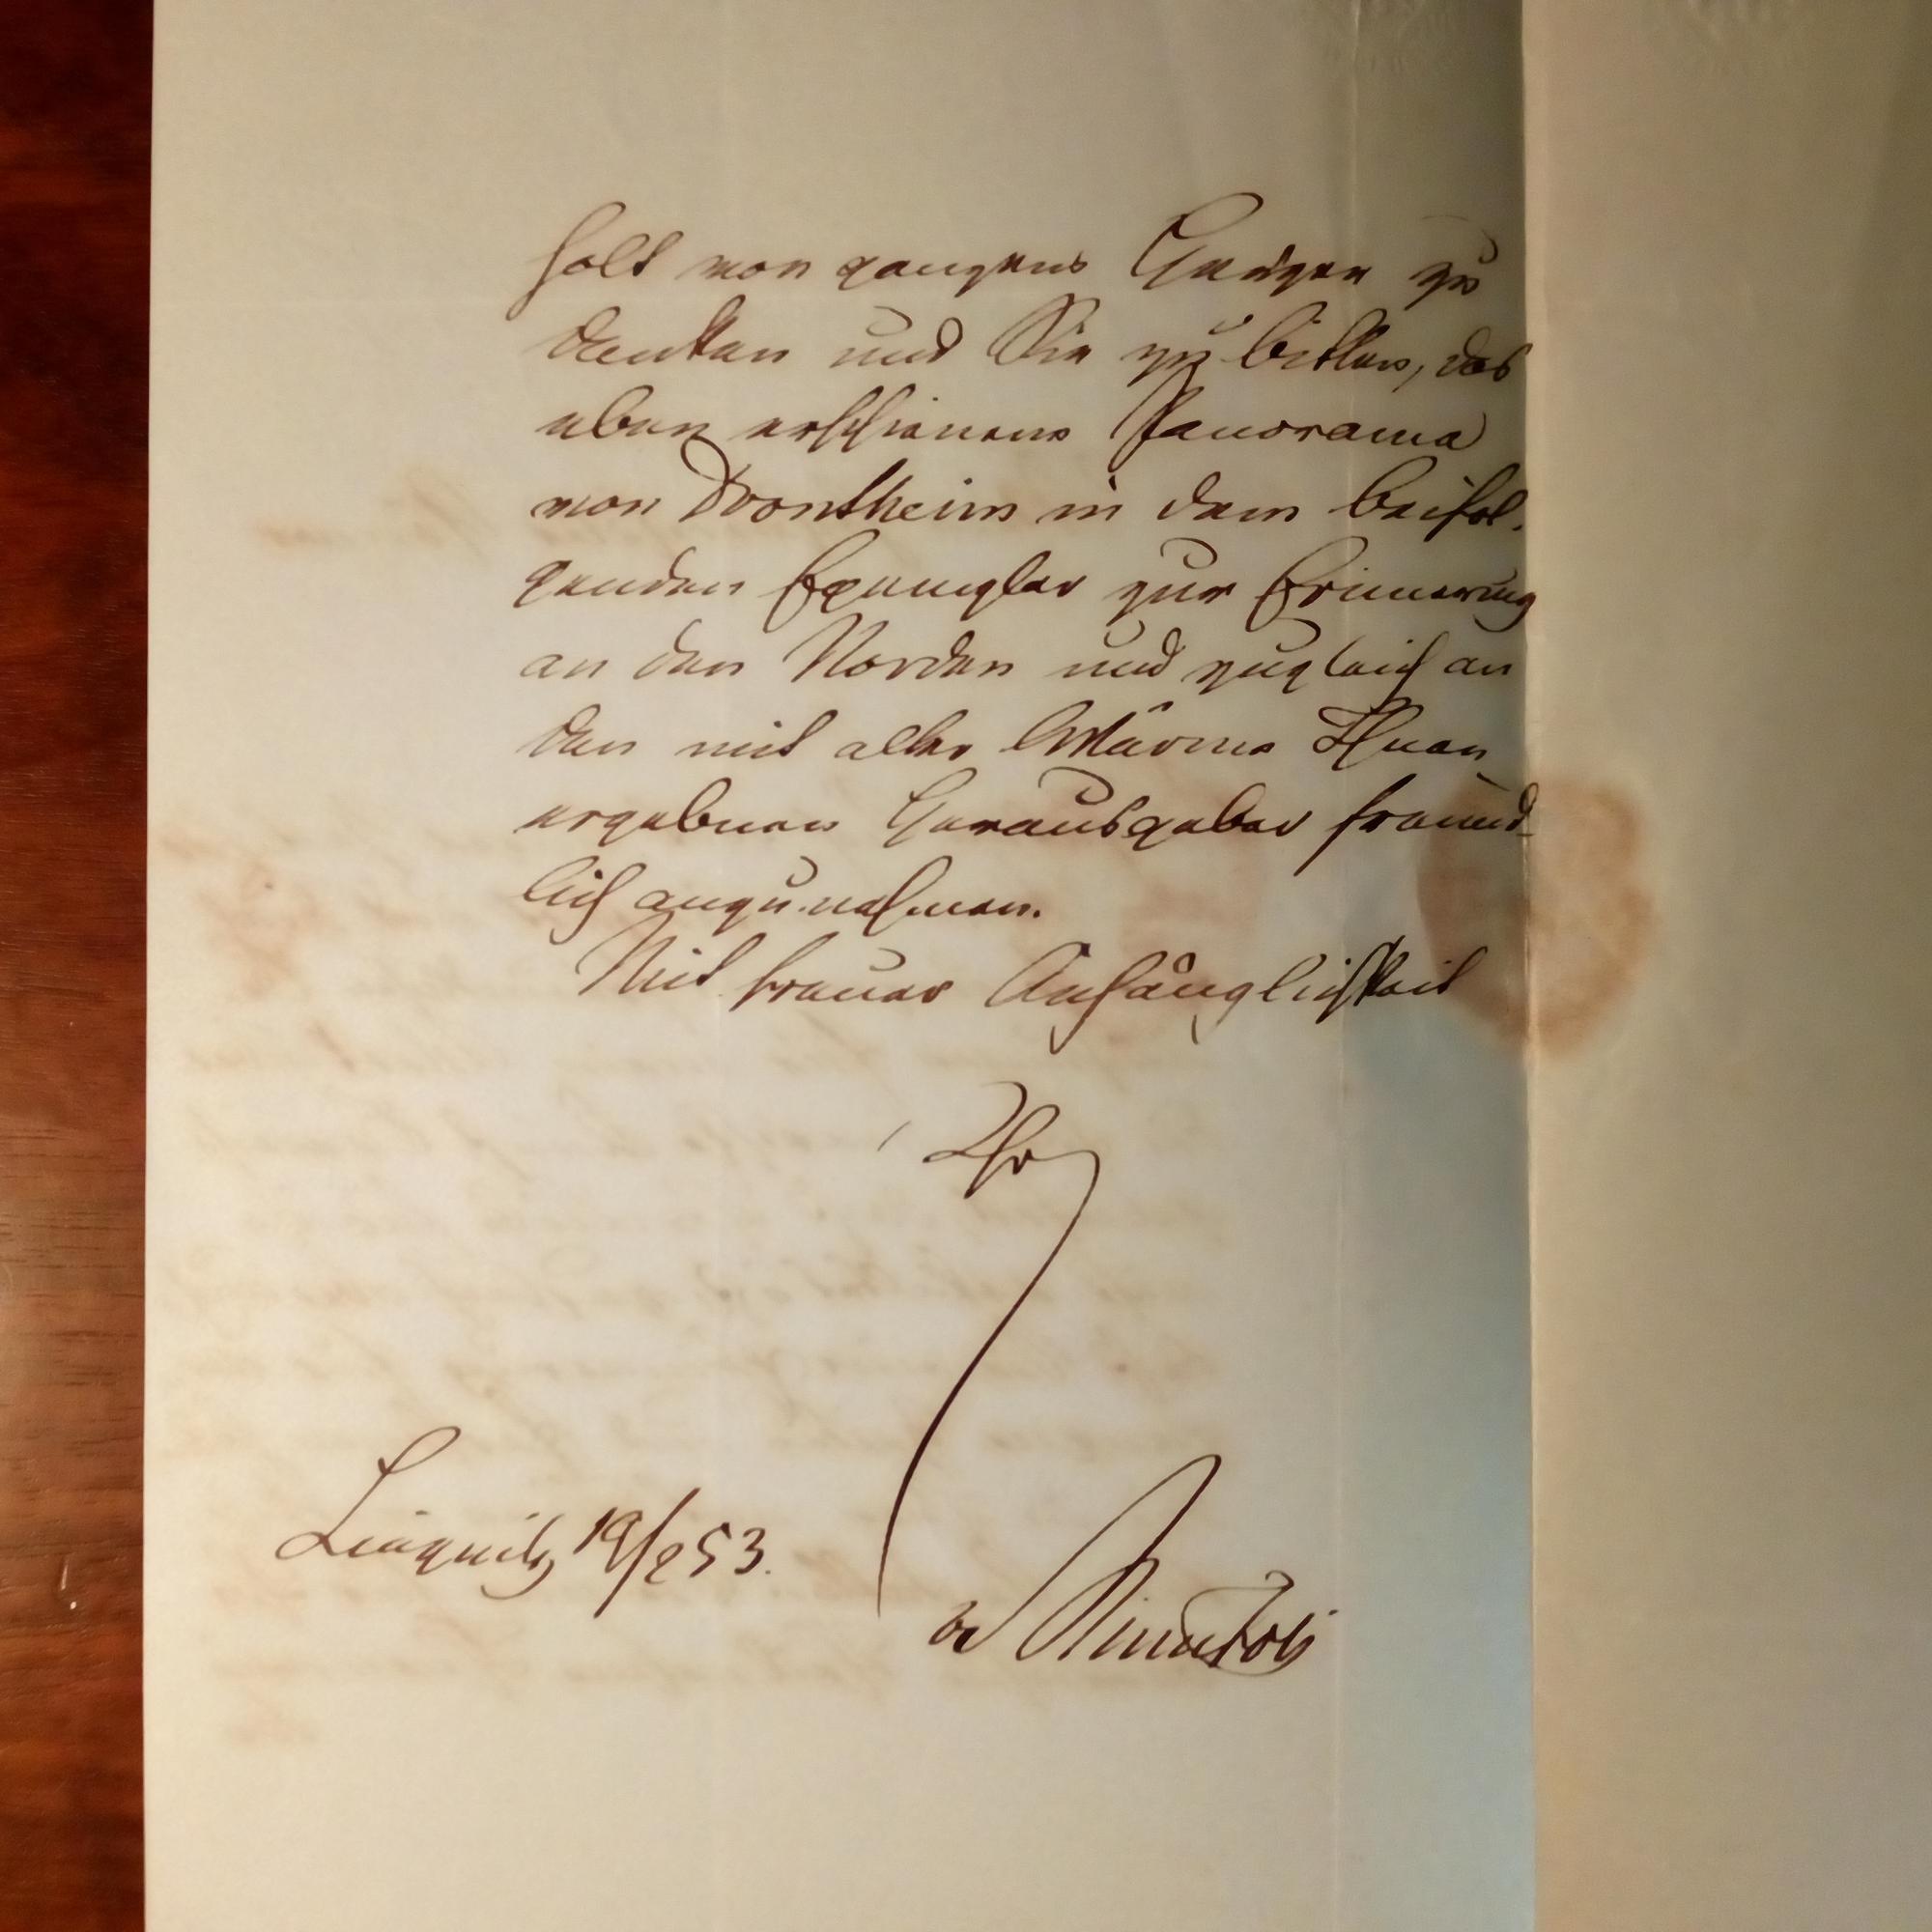 holt von ganzem Herzen zu
danken und Sie zu bitten, das
eben erschienene Panorama
von Drontheim in dem beifol-
genden Exemplar zur Erinnerung
an den Norden und zugleich an
den mit aller Wärme Ihnen
ergebenen Herausgeber freund-
lich anzunehmen.
Mit treuer Anhänglichkeit
Ihr
Liegnitz 19/2 53.
v Minutoli